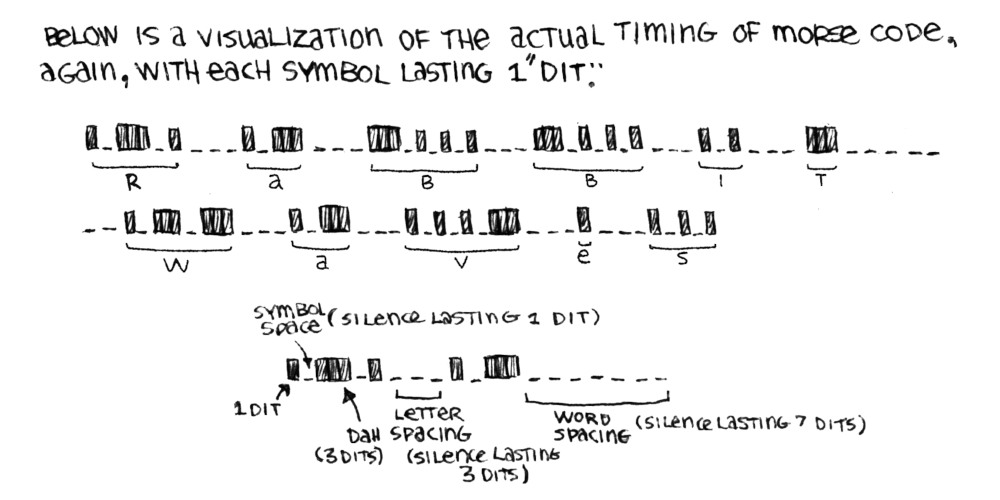 BELOW IS A VISUALIZATION OF THE ACTUAL TIMING OF MORSE CODE,
AGAIN, WITH EACH SYMBOL LASTING 1 "DIT":
R A B B I T
W A V E S
SYMBOL SPACE (SILENCE LASTING 1 DIT)
1 DIT
DAH (3 DITS)
LETTER SPACING (SILENCE LASTING 3 DITS)
WORD SPACING (SILENCE LASTING 7 DITS)